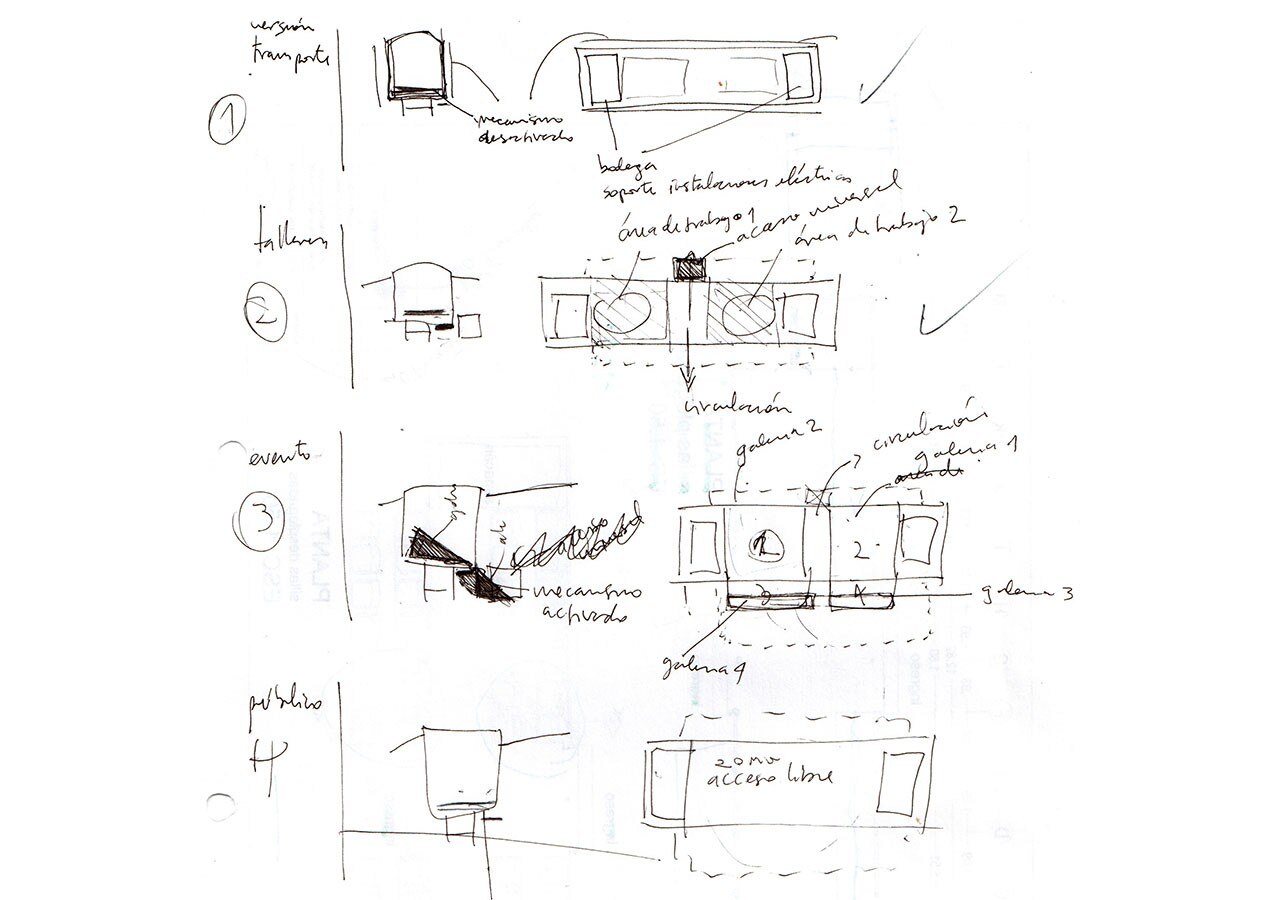 versión
transporte
1
mecanismo
desactivado
bodega
soporte instalaciones eléctricas
talleres
2
área de trabajo 1
acceso universal
área de trabajo 2
circulación
evento
3
mecanismo
activado
galería 2
circulación
galería 1
2
3
4
galería 3
galería 4
público
4
zona
acceso libre
PLANTA